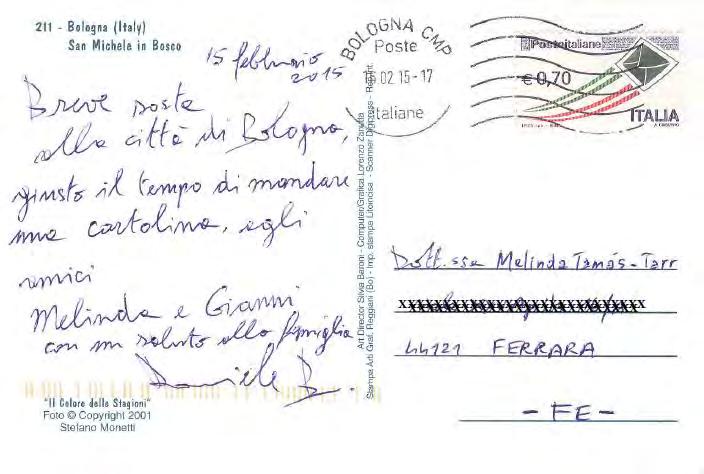 211 - Bologna (Italy)
San Michele in Bosco
15 febbraio
2015
Breve sosta
alla città di Bologna,
giusto il tempo di mandare
una cartolina, agli
amici
Melinda e Gianni
con un saluto alla famiglia
Daniele B.
"Il Colore delle Stagioni"
Foto © Copyright 2001
Stefano Monetti
Art Director Silvia Baroni - Computer/Grafica Lorenzo Zanetta
Stampa Arti Graf. Reggiani (Bo) - Imp. stampa - Scanner
BOLOGNA CMP
Poste
.02 15-17
Italiane
Posteitaliane
€ 0,70
ITALIA
Dott.ssa Melinda Tamás-Tarr
44121 FERRARA
- FE -